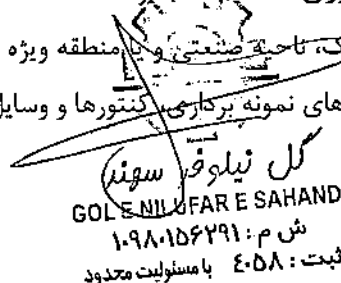 ک، ناحیه صنعتی و یا منطقه ویژه
های نمونه برداری، کنتورها و وسایل
گل نیلوفر سهند
GOLE NILUFAR E SAHAND
ش م: ۱۰۹۸۰۱۵۶۲۹۱
ثبت: ۴۰۵۸ بامسئولیت محدود